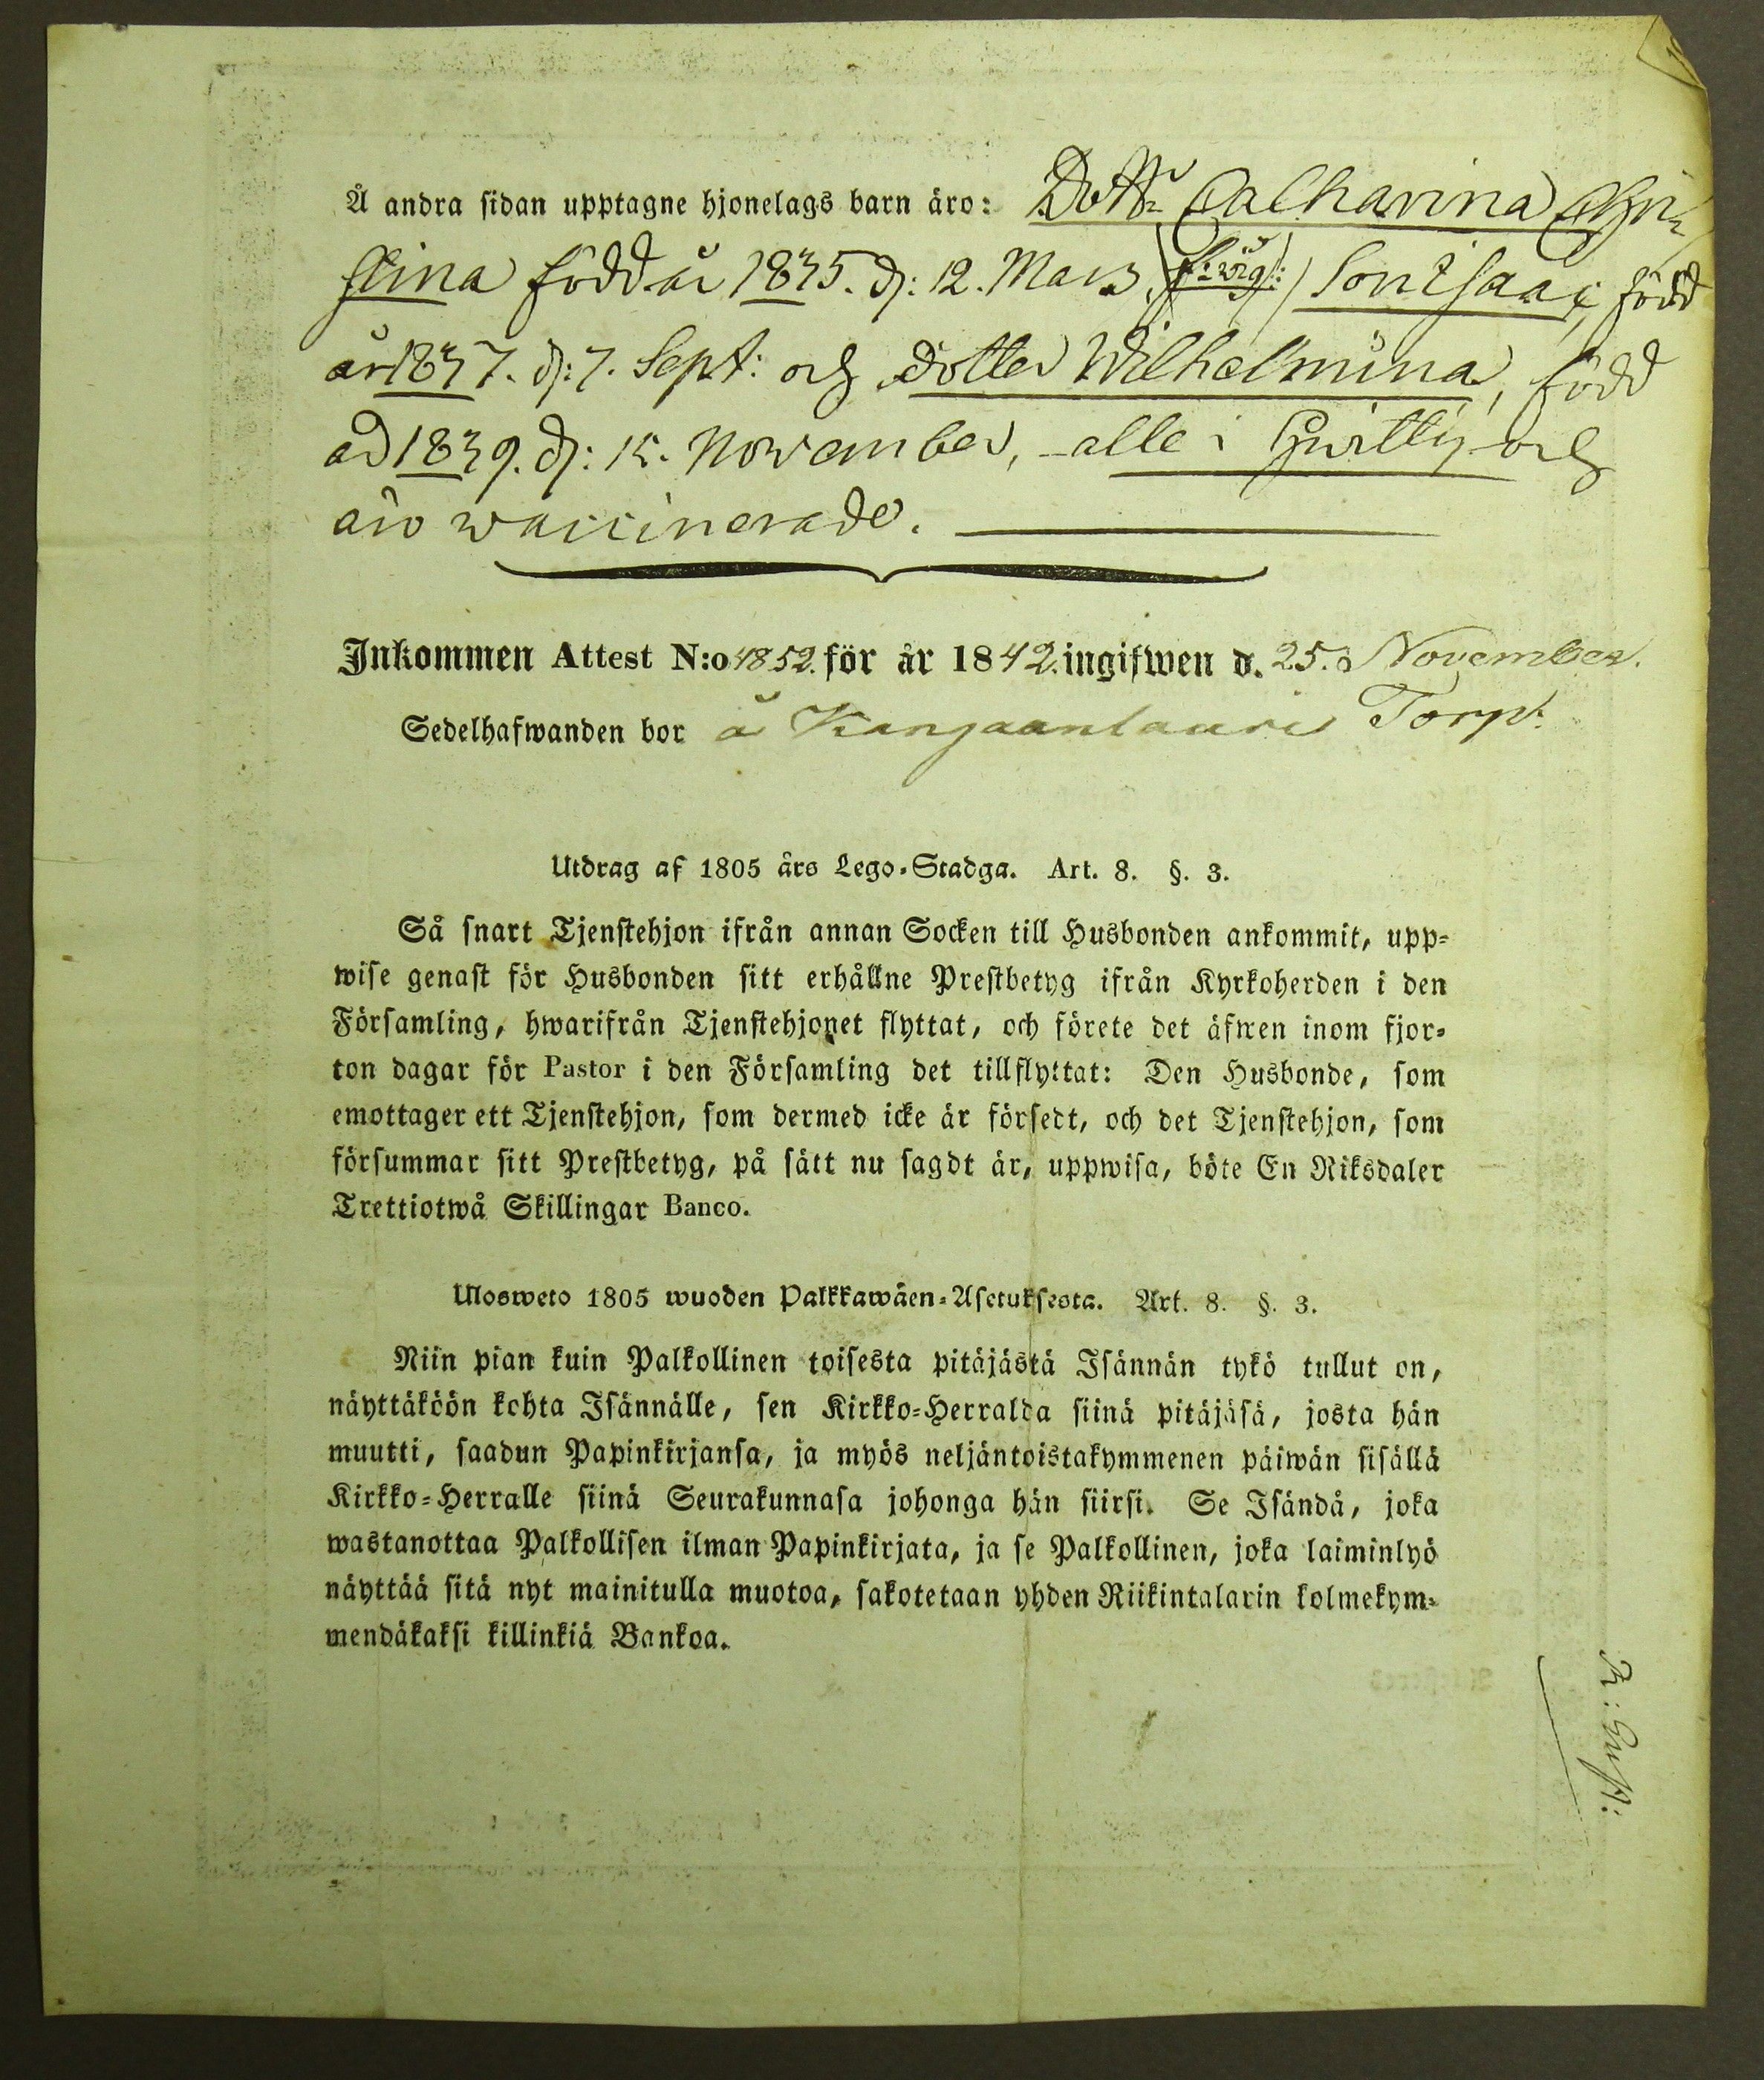 Å andra sidan upptagne hjonelags barn äro: Dottr Catharina Chri-
stina född år 1835. d: 12. Mars, (f: vigs:) Son Isaac, född
år 1837. d: 7. Sept: och dotter Wilhelmina, född
år 1839. d: 15. November, alle i och
äro waccinerade.
Inkommen Attest N:o 4852. för år 1842. ingifwen d. 25. November.
Sedelhafwanden bor å Kangaanlauri Torp.
Utdrag af 1805 års Lego-Stadga. Art. 8. §. 3.
Så snart Tjenstehjon ifrån annan Socken till Husbonden ankommit, upp-
wise genast för Husbonden sitt erhållne Prestbetyg ifrån Kyrkoherden i den
Församling, hwarifrån Tjenstehjonet flyttat, och förete det äfwen inom fjor-
ton dagar för Pastor i den Församling det tillflyttat: Den Husbonde, som
emottager ett Tjenstehjon, som dermed icke är försedt, och det Tjenstehjon, som
försummar sitt Prestbetyg, på sätt nu sagdt är, uppwisa, böte En Riksdaler
Trettiotwå Skillingar Banco.
Ulosweto 1805 wuoden Palkkawäen-Asetuksesta. Art. 8. §. 3.
Niin pian kuin Palkollinen toisesta pitäjästä Isännän tykö tullut on,
näyttäköön kohta Isännälle, sen Kirkko-Herralda siinä pitäjäsä, josta hän
muutti, saadun Papinkirjansa, ja myös neljäntoistakymmenen päiwän sisällä
Kirkko-Herralle siinä Seurakunnasa johonga hän siirsi. Se Isändä, joka
wastanottaa Palkollisen ilman Papinkirjata, ja se Palkollinen, joka laiminlyö
näyttää sitä nyt mainitulla muotoa, sakotetaan yhden Riikintalarin kolmekym-
mendäkaksi killinkiä Bankoa.